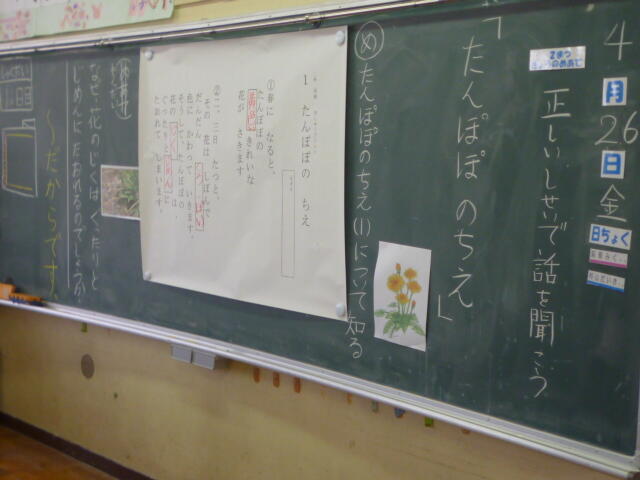 4月26日金
日ちょく
2まつ
正しいしせいで話を聞こう
「たんぽぽのちえ」
め たんぽぽのちえ(1)について知る
1 たんぽぽの ちえ
①春に なると、
たんぽぽの
きれいな
花が さきます
②二、三日 たつと、
その 花は しぼんで
だんだん
色に かわって いきます。
そうして、たんぽぽの
花の じくは、
ぐったりと に
たおれて しまいます。
なぜ、花のじくは、ぐったりと
じめんに たおれるのでしょうか。
～だからです。